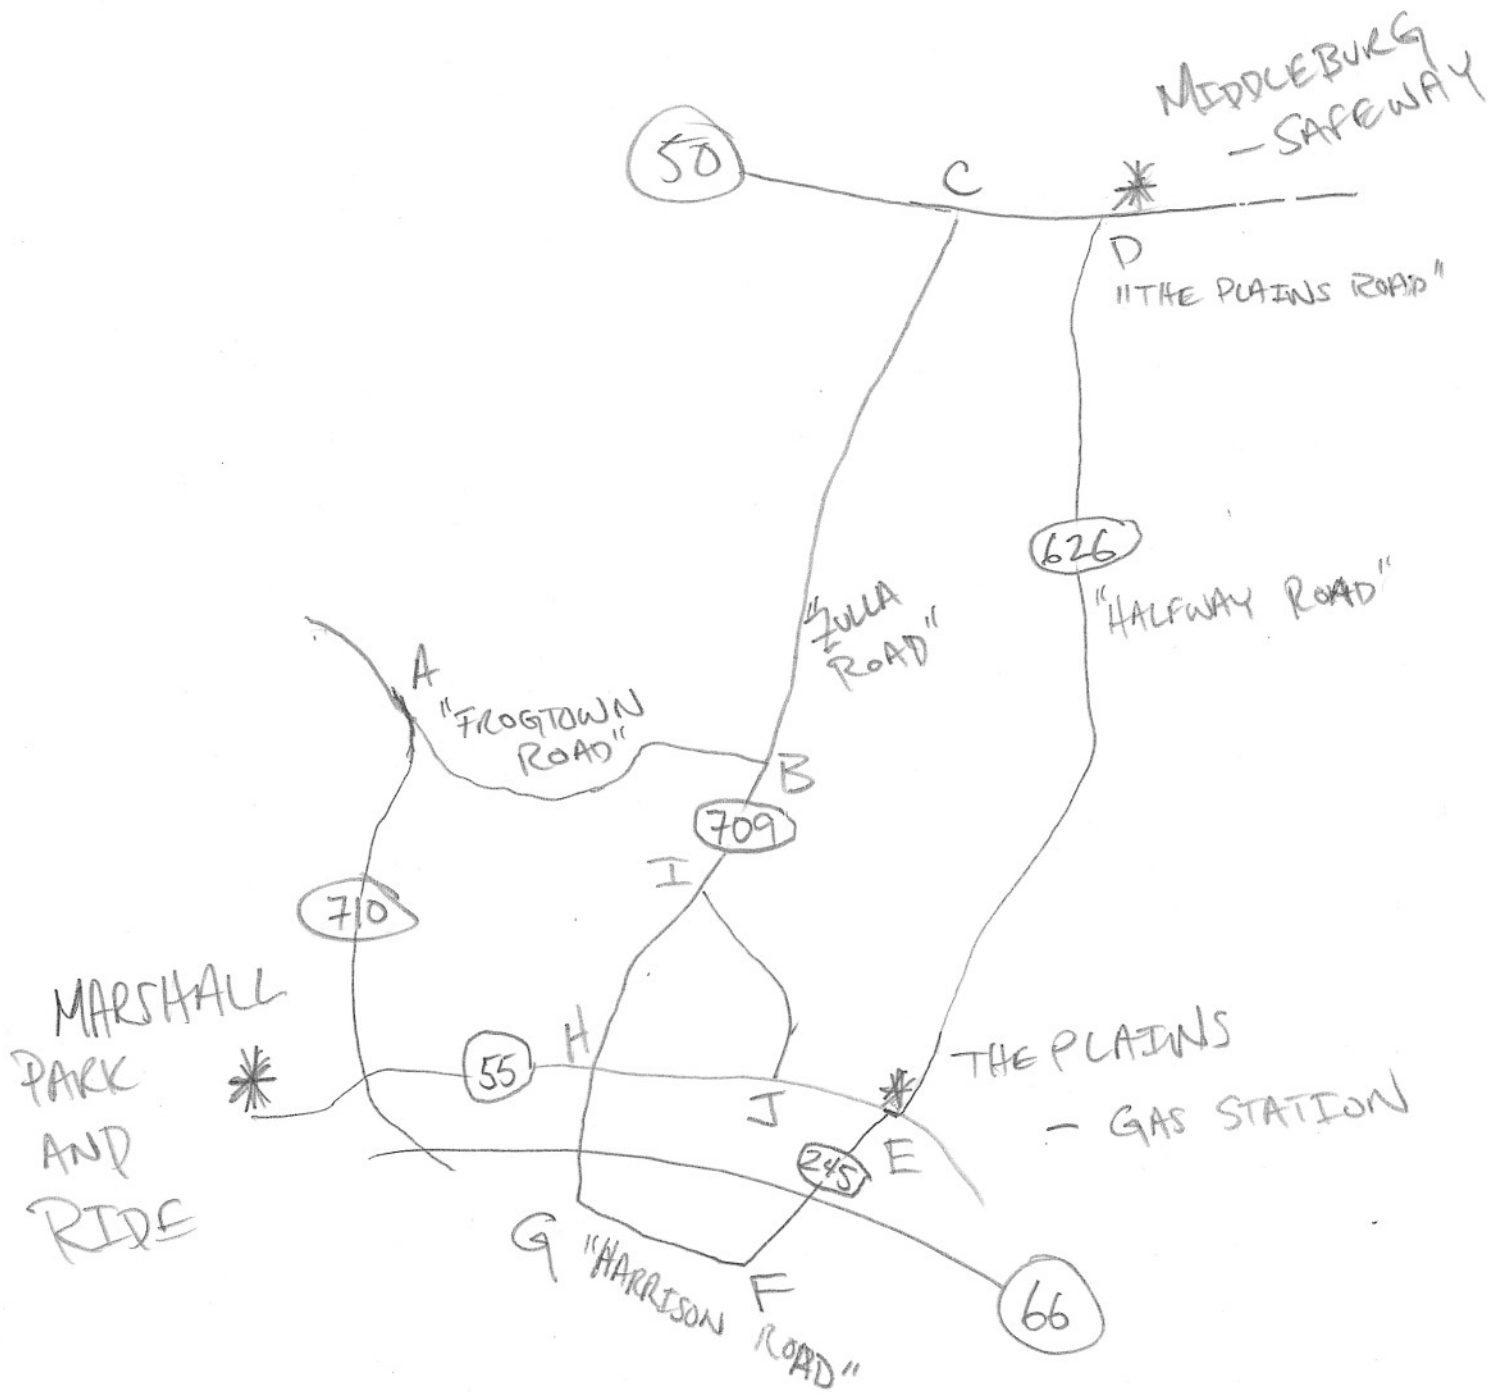 MIDDLEBURG
- SAFEWAY
50
C
D
"THE PLAINS ROAD"
626
"HALFWAY ROAD"
"ZULLA
ROAD"
A
"FROGTOWN
ROAD"
B
709
I
710
MARSHALL
PARK
AND
RIDE
55
H
J
THE PLAINS
- GAS STATION
E
245
G
"HARRISON ROAD"
F
66